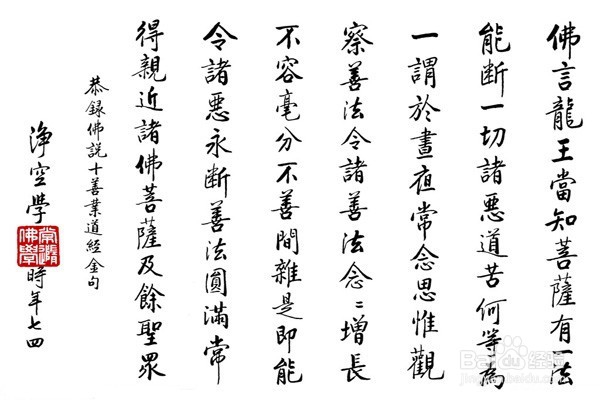 佛言龍王當知菩薩有一法
能断一切諸惡道苦何等為
一謂於晝夜常念思惟觀
察善法令諸善法念〻增長
不容毫分不善間雜是即能
令諸惡永断善法圓滿常
得親近諸佛菩薩及餘聖眾
恭録佛説十善業道經金句
淨空學
時年七四
Baidu经验
jingyan.baidu.com